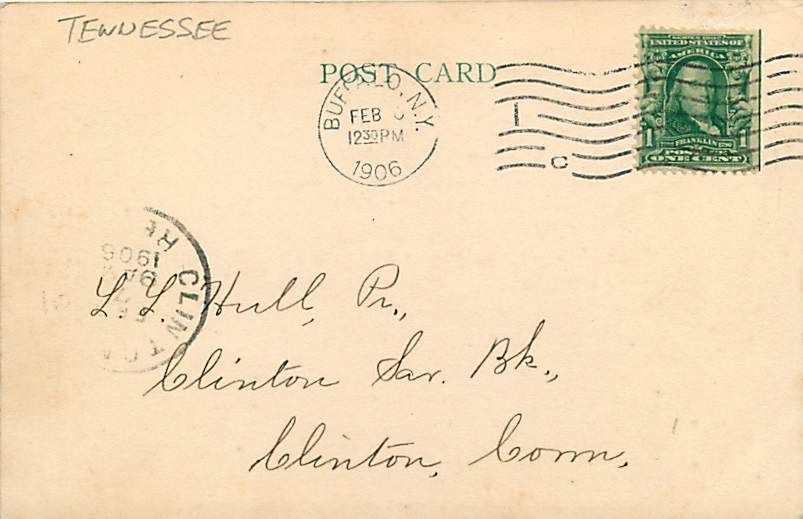 TENNESSEE
POST CARD
BUFFALO, N.Y.
FEB
12 30 PM
1906
1
C
SERIES 1902
UNITED STATES OF
AMERICA
FRANKLIN
1 1
POSTAGE
ONE CENT
CLINTON
1906
9A
L. L. Hull, Pr.,
Clinton Sav. Bk.,
Clinton, Conn.